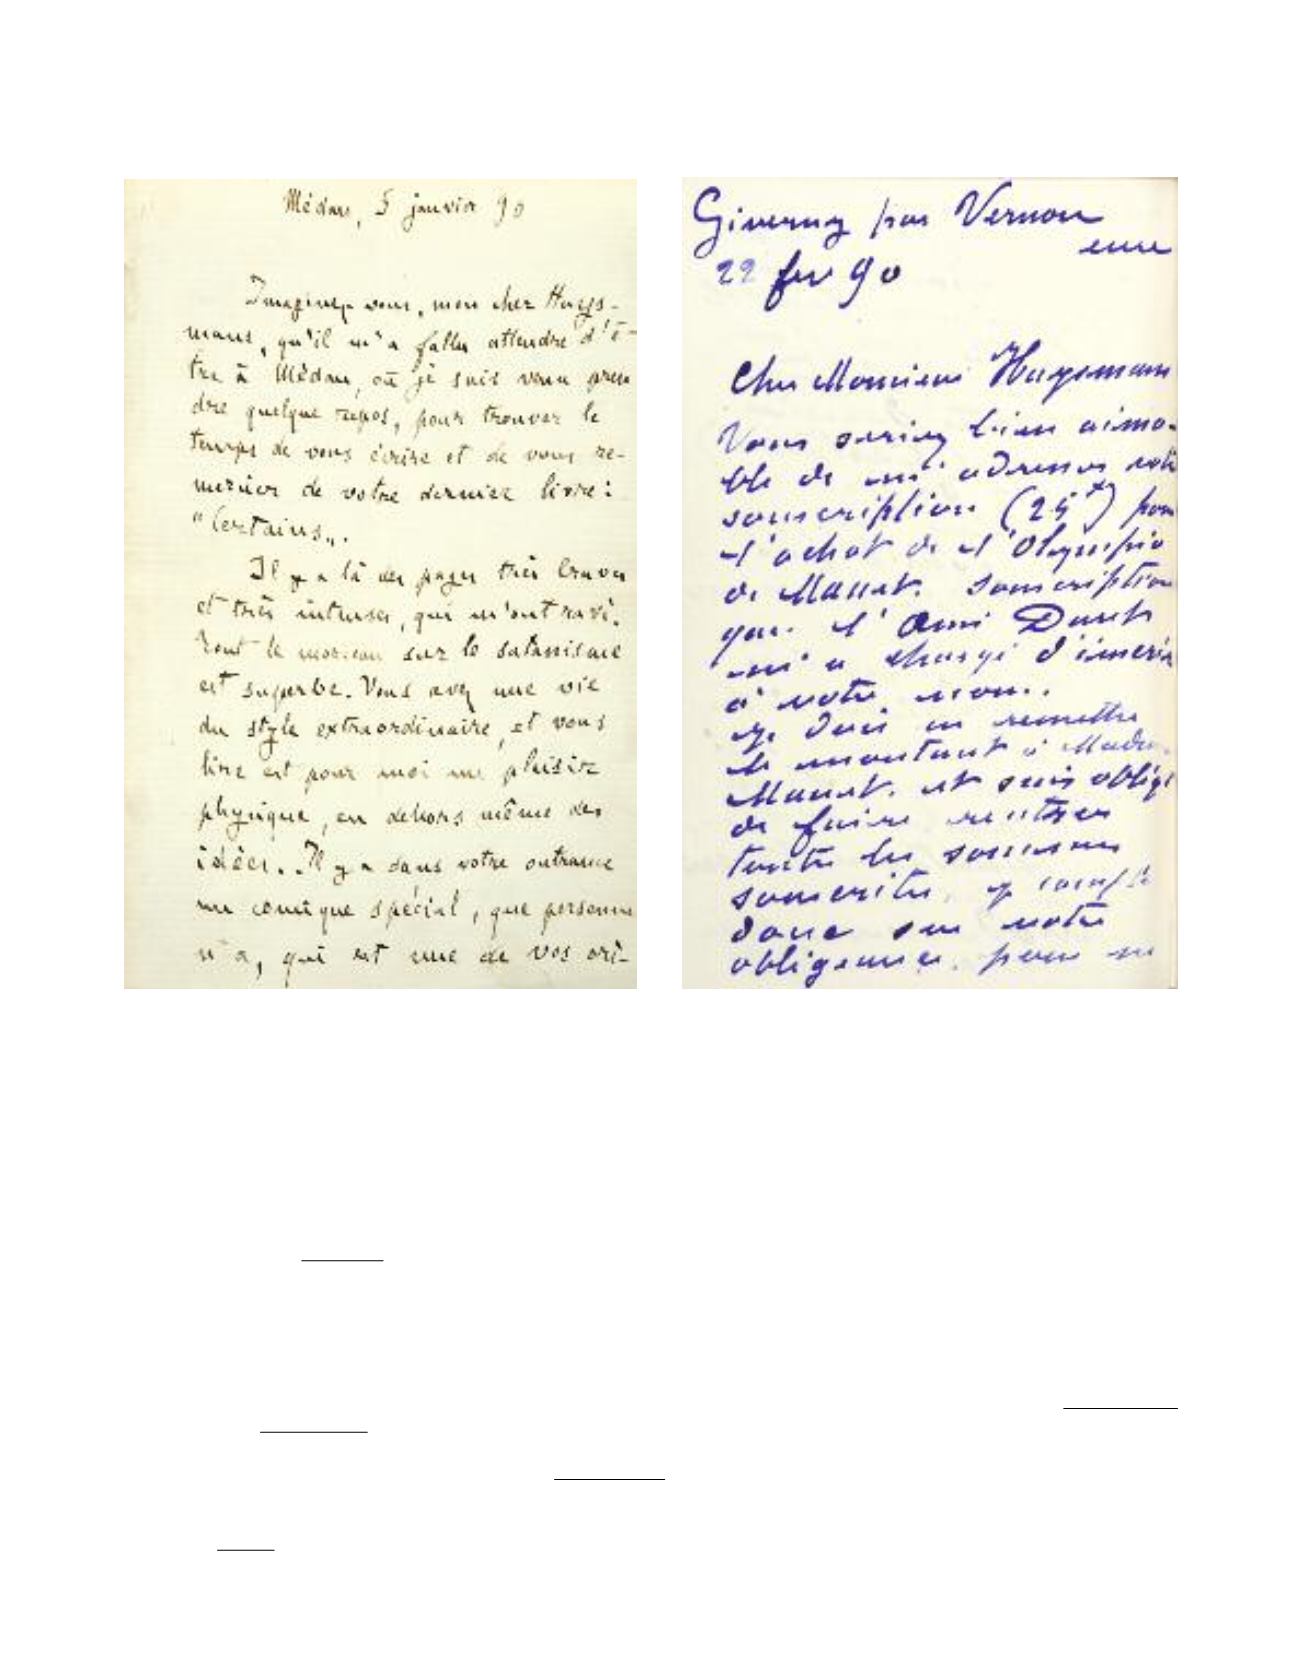 Médan, 5 janvier 90
Imaginez vous, mon cher Huys-
mans, qu'il m'a fallu attendre d'ê-
tre à Médan, où je suis venu pren
dre quelque repos, pour trouver le
temps de vous écrire et de vous re-
mercier de votre dernier livre :
"Certains".
Il y a là des pages très braves
et très intenses, qui m'ont ravi.
Tout le morceau sur le satanisme
est superbe. Vous avez une vie
du style extraordinaire, et vous
lire est pour moi un plaisir
physique, en dehors même des
idées. Il y a dans votre outrance
un comique spécial, que personne
n'a, qui est une de vos ori-
Giverny par Vernon
eure
22 fev 90
Cher Monsieur Huysmans
Vous seriez bien aima-
ble de m'adresser votre
souscription (25f) pour
l'achat de l'Olympia
de Manet. souscription
que l'ami Duret
m'a chargé d'inscrire
à votre nom..
Je dois en remettre
le montant à Madame
Manet. et suis obligé
de faire rentrer
toutes les sommes
souscrites. je compte
donc sur votre
obligeance. pour me